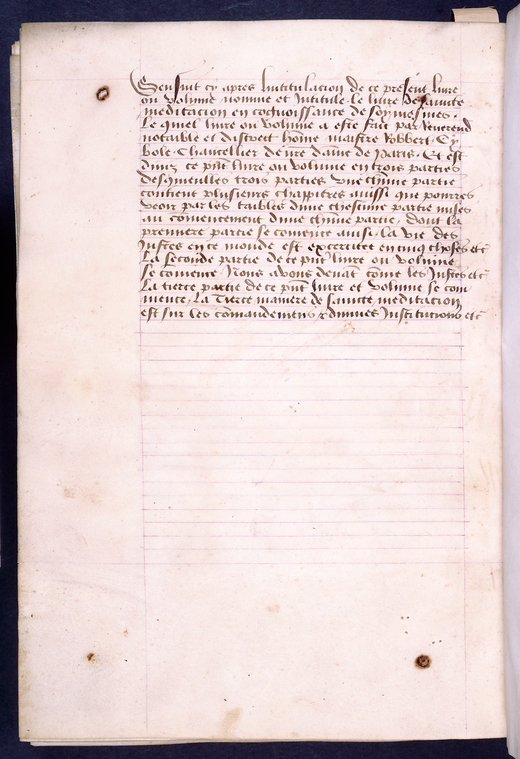 Sensuit cy apres lintitulacion de ce present livre
ou volume nomme et Intitule le livre de saincte
meditacion en congnoissance de soy mesmes.
Le quel livre ou volume a este fait par Reverend
notable et discret home maistre Robbert Cy
bole Chancellier de nre dame de Paris. Et est
divise ce pnt livre ou volume en trois parties
desquelles trois parties une chune partie
contient plusieurs chappitres aussi que pourres
veoir par les tables dune chescune partie mises
au comencement dune chune partie, dont la
premiere partie se comence ainsi, la vie des
Justes en ce monde est excercitee en cinq choses etc
La seconde partie de ce pnt livre ou volume
se comence Nous avons devat come les Justes etc
La tierce partie de ce pnt livre et volume se com
mence, La Tierce maniere de saincte meditacion
est sur les comandemens & divines Institutions etc